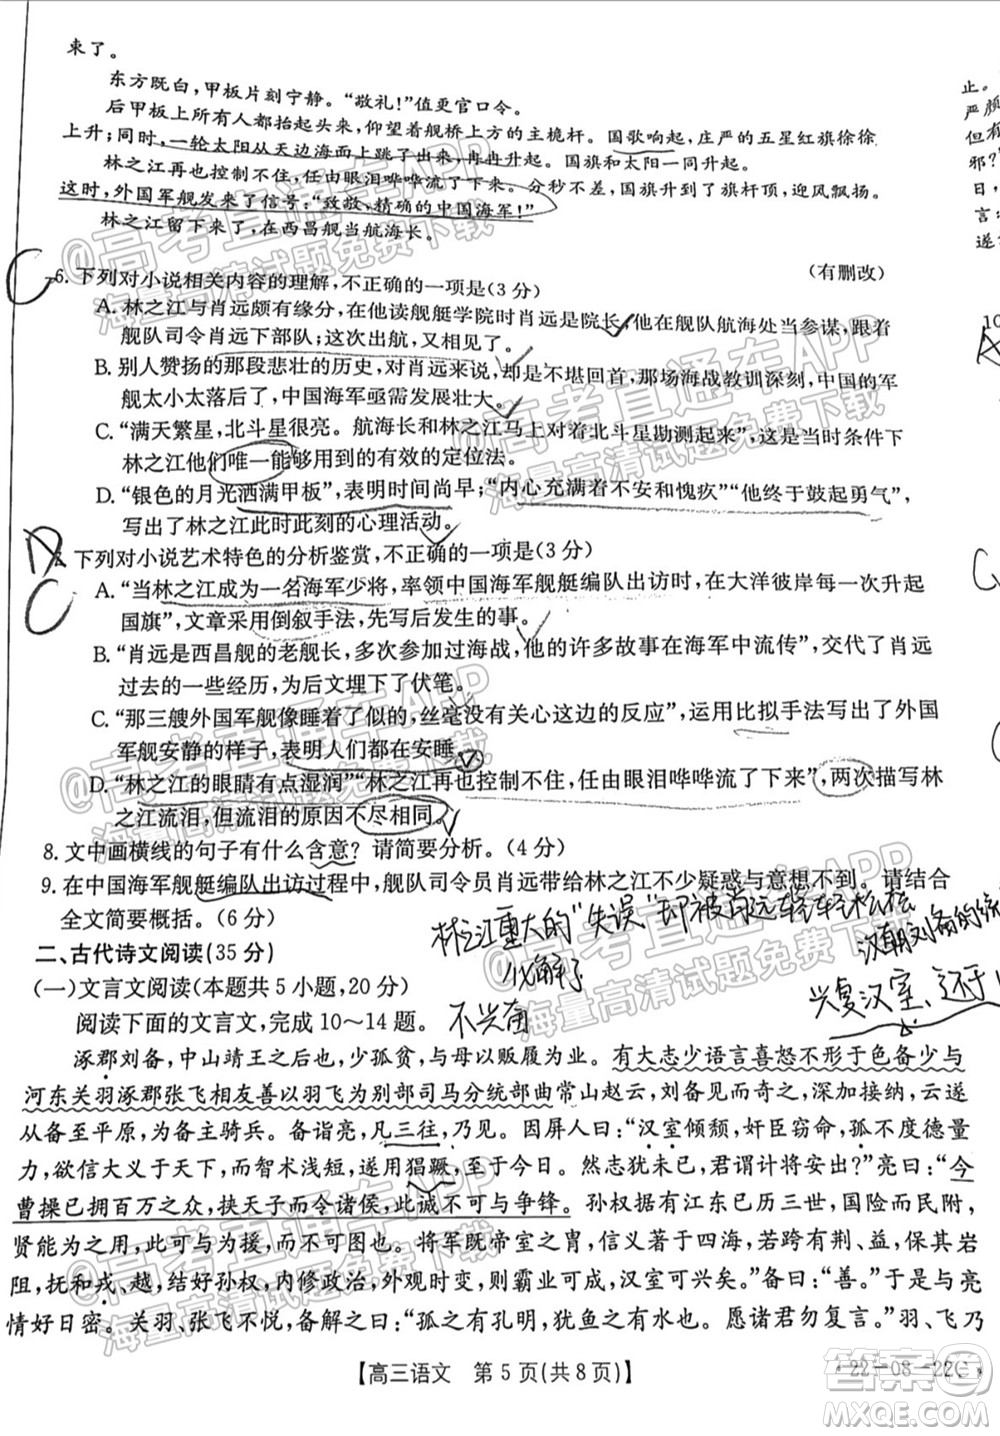 来了。
东方既白,甲板片刻宁静。“敬礼!”值更官口令。
后甲板上所有人都抬起头来,仰望着舰桥上方的主桅杆。国歌响起,庄严的五星红旗徐徐
上升;同时,一轮太阳从天边海面上跳了出来,冉冉升起。国旗和太阳一同升起。
林之江再也控制不住,任由眼泪哗哗流了下来。分秒不差,国旗升到了旗杆顶,迎风飘扬。
这时,外国军舰发来了信号:“致敬、精确的中国海军!”
林之江留下来了,在西昌舰当航海长。
(有删改)
6. 下列对小说相关内容的理解,不正确的一项是(3分)
A. 林之江与肖远颇有缘分,在他读舰艇学院时肖远是院长,他在舰队航海处当参谋,跟着
舰队司令肖远下部队;这次出航,又相见了。
B. 别人赞扬的那段悲壮的历史,对肖远来说,却是不堪回首,那场海战教训深刻,中国的军
舰太小太落后了,中国海军亟需发展壮大。
C. “满天繁星,北斗星很亮。航海长和林之江马上对着北斗星勘测起来”,这是当时条件下
林之江他们唯一能够用到的有效的定位法。
D. “银色的月光洒满甲板”,表明时间尚早;“内心充满着不安和愧疚”“他终于鼓起勇气”,
写出了林之江此时此刻的心理活动。
下列对小说艺术特色的分析鉴赏,不正确的一项是(3分)
A. “当林之江成为一名海军少将,率领中国海军舰艇编队出访时,在大洋彼岸每一次升起
国旗”,文章采用倒叙手法,先写后发生的事。
B. “肖远是西昌舰的老舰长,多次参加过海战,他的许多故事在海军中流传”,交代了肖远
的一些经历,为后文埋下了伏笔。
C. “那三艘外国军舰像睡着了似的,丝毫没有关心这边的反应”,运用比拟手法写出了外国
军舰安静的样子,表明人们都在安睡。
D. “林之江的眼睛有点湿润”“林之江再也控制不住,任由眼泪哗哗流了下来”,两次描写林
之江流泪,但流泪的原因不尽相同。
8. 文中画横线的句子有什么含意?请简要分析。(4分)
9. 在中国海军舰艇编队出访过程中,舰队司令员肖远带给林之江不少疑惑与意想不到。请结合
全文简要概括。(6分)
林之江重大的“失误”却被肖远轻轻松松
化解了
二、古代诗文阅读(35分)
(一)文言文阅读(本题共5小题,20分)
兴复汉室、还于
阅读下面的文言文,完成10~14题。
涿郡刘备,中山靖王之后也,少孤贫,与母以贩履为业。有大志少语言喜怒不形于色备少与
河东关羽涿郡张飞相友善以羽飞为别部司马分统部曲常山赵云,刘备见而奇之,深加接纳,云遂
从备至平原,为备主骑兵。备诣亮,凡三往,乃见。因屏人曰:“汉室倾颓,奸臣窃命,孤不度德量
力,欲信大义于天下,而智术浅短,遂用猖蹶,至于今日。然志犹未已,君谓计将安出?”亮曰:“今
曹操已拥百万之众,挟天子而令诸侯,此诚不可与争锋。孙权据有江东已历三世,国险而民附,
贤能为之用,此可与为援,而不可图也。将军既帝室之胄,信义著于四海,若跨有荆、益,保其岩
阻,抚和戎、越,结好孙权,内修政治,外观时变,则霸业可成,汉室可兴矣。”备曰:“善。”于是与亮
情好日密。关羽、张飞不悦,备解之曰:“孤之有孔明,犹鱼之有水也。愿诸君勿复言。”羽、飞乃
【高三语文 第5页(共8页)】
22-08-22C